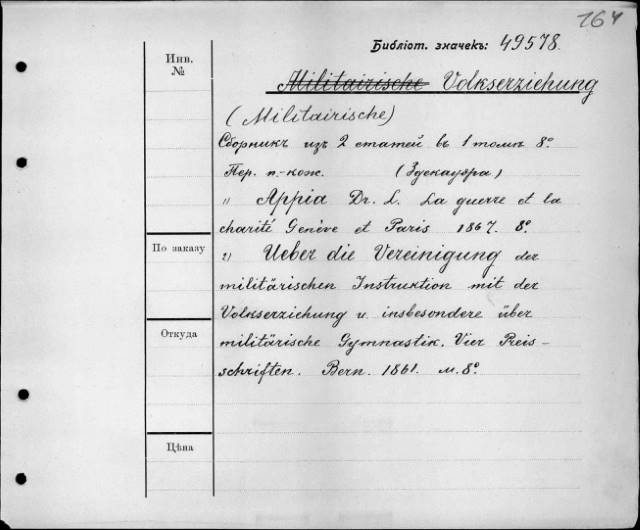 764
Библіот. значекъ: 49578.
Инв.
№
Militairische Volkserziehung
(Militairische)
Сборникъ изъ 2 статей въ 1 томѣ 8º
Пер. п.-кож. (Здекауера)
1) Appia Dr. L. La guerre et la
charité Genève et Paris 1867. 8º
По заказу
2) Ueber die Vereinigung der
militärischen Instruktion mit der
Volkserziehung u. insbesondere über
Откуда
militärische Gymnastik. Vier Preis-
schriften. Bern. 1861. м. 8º
Цѣна